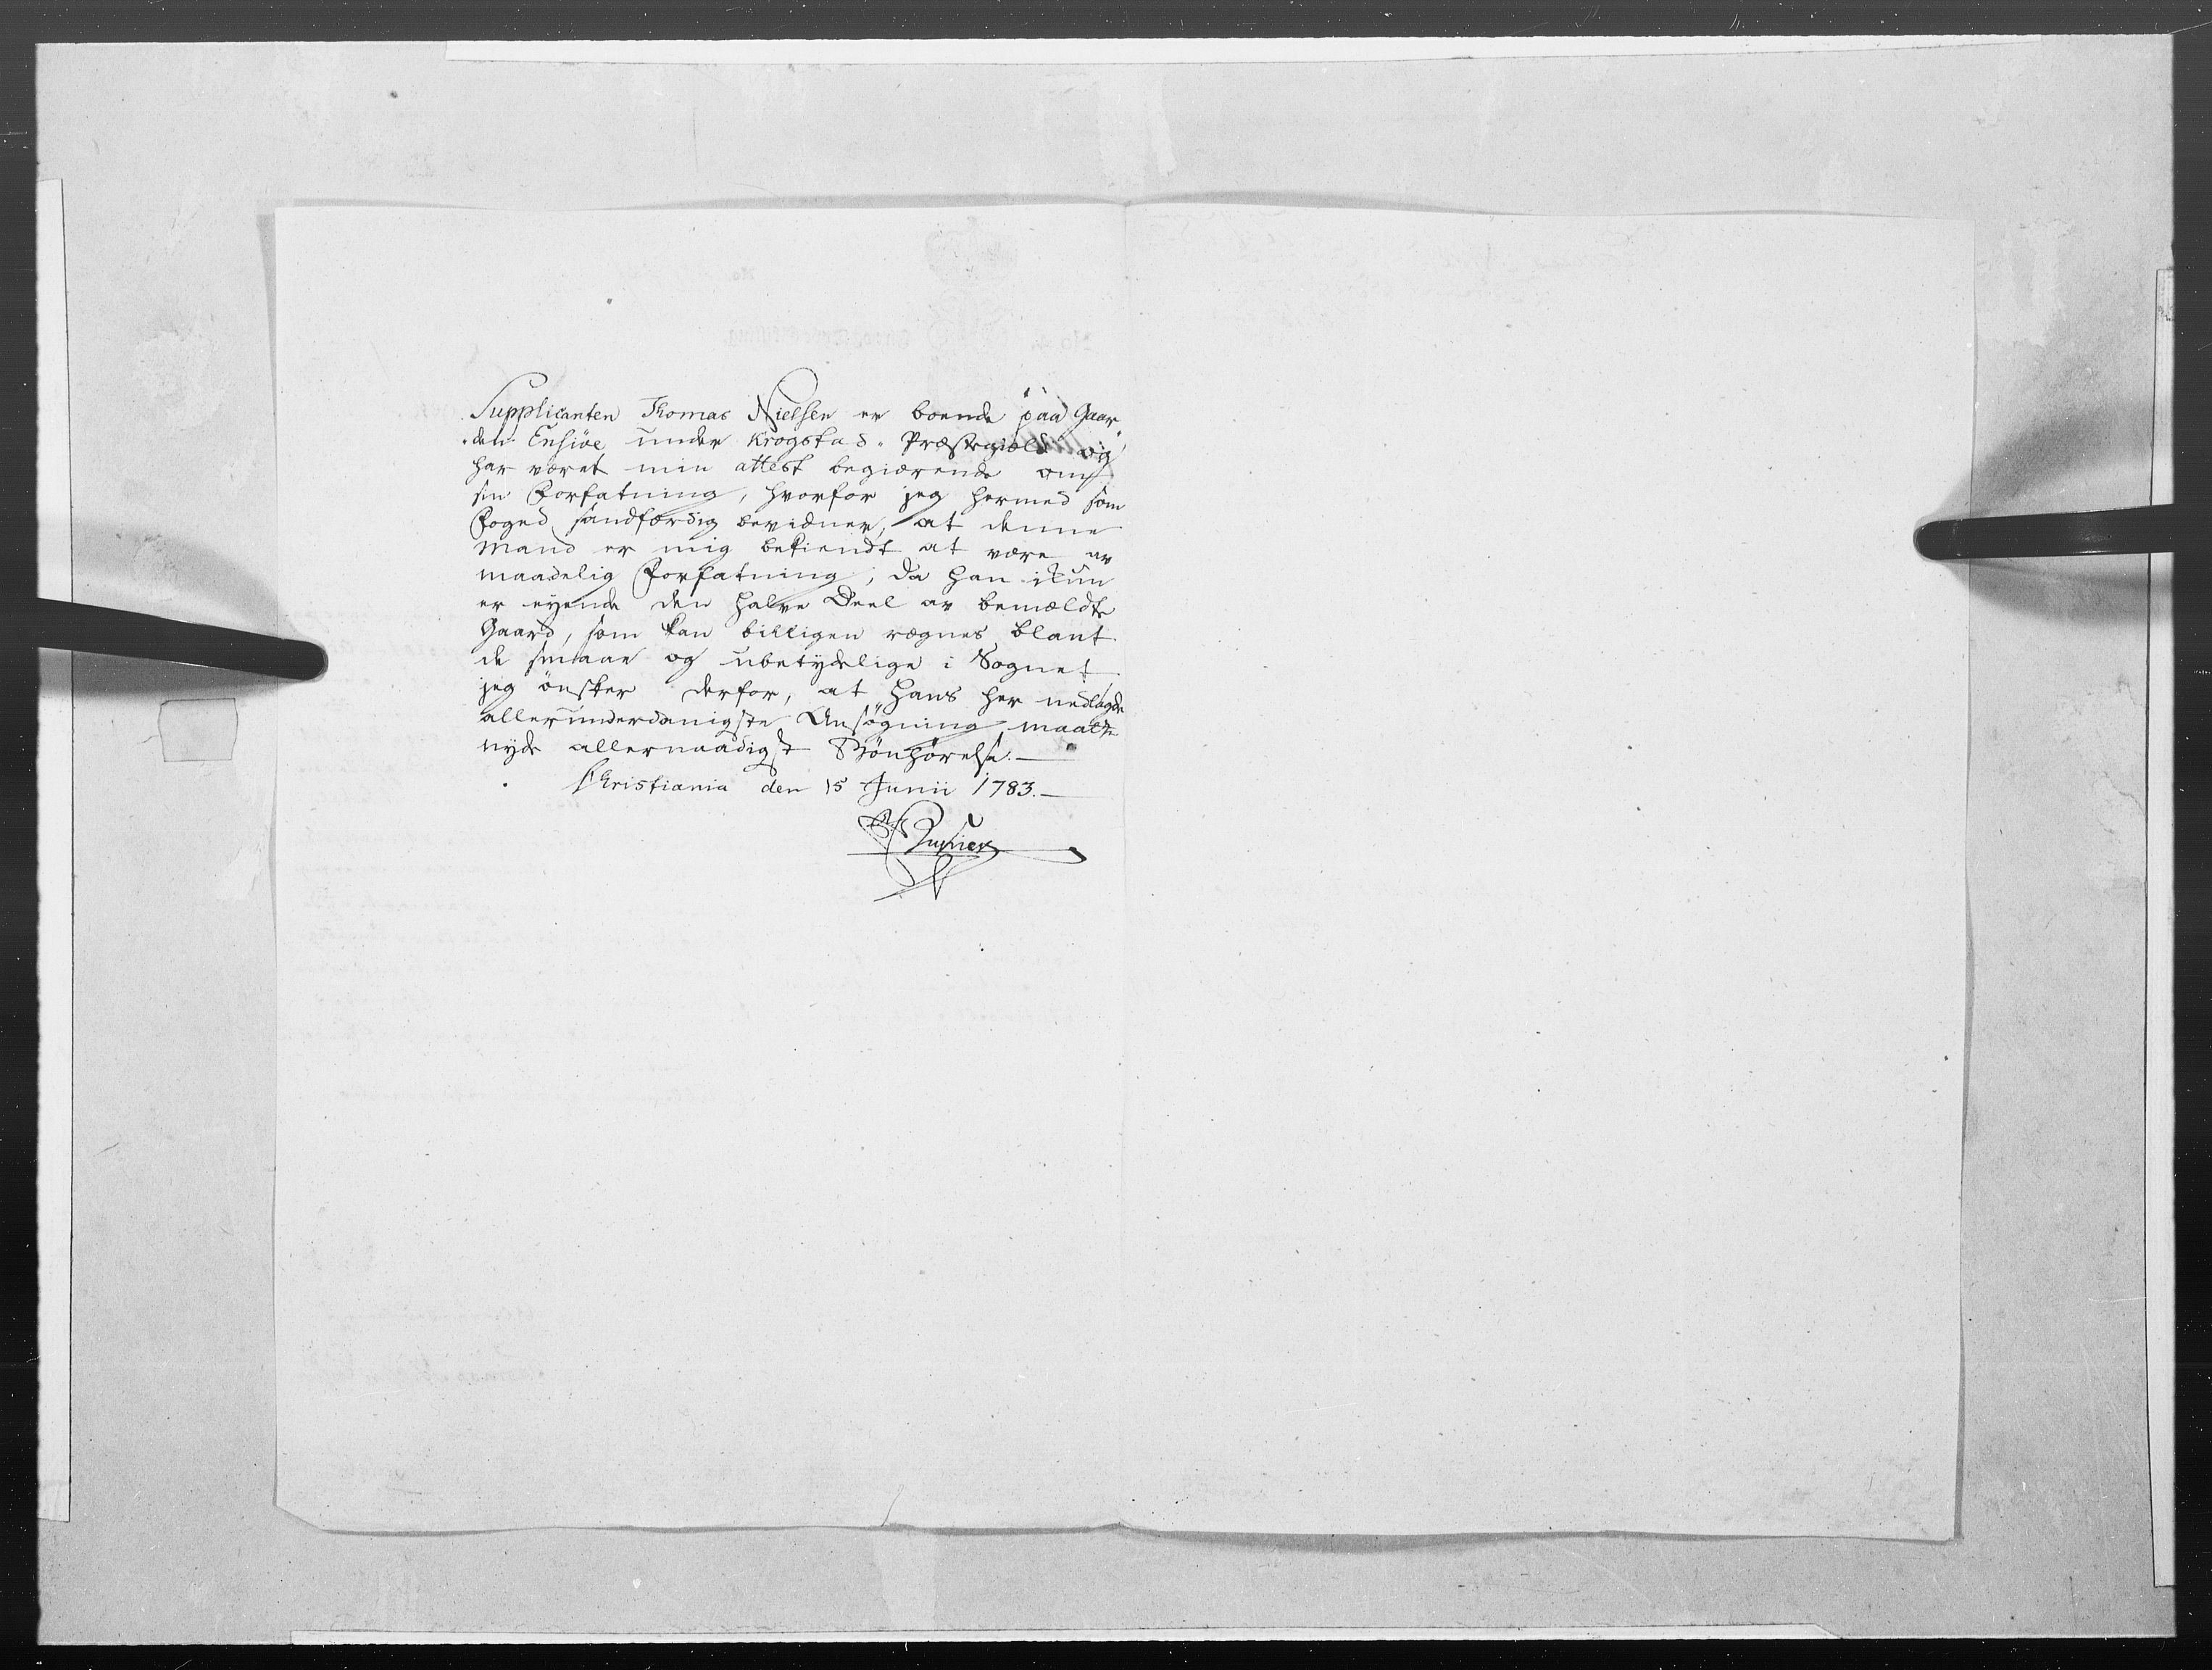 Supplicanten Thomas Nielsen er boende paa Gaar„
„den Ensiöe under Krogstad„ Præstegield og
har været min attest begiærende om
sin Forfatning, hvorfor jeg hermed som
Foged sandfærdig bevidner, at denne
Mand er mig bekiendt at være av
maadelig Forfatning, da han ikun
er eyende den halve Deel av bemældte
Gaard, som kan billigen regnes blant
de smaae og ubetydelige i Sognet
jeg ønsker derfor, at hans her nedlagde
allerunderdanigste Ansøgning maatte
nyde allernaadigst Bønhørelse.—
Christiania den 15 Junii 1783.—